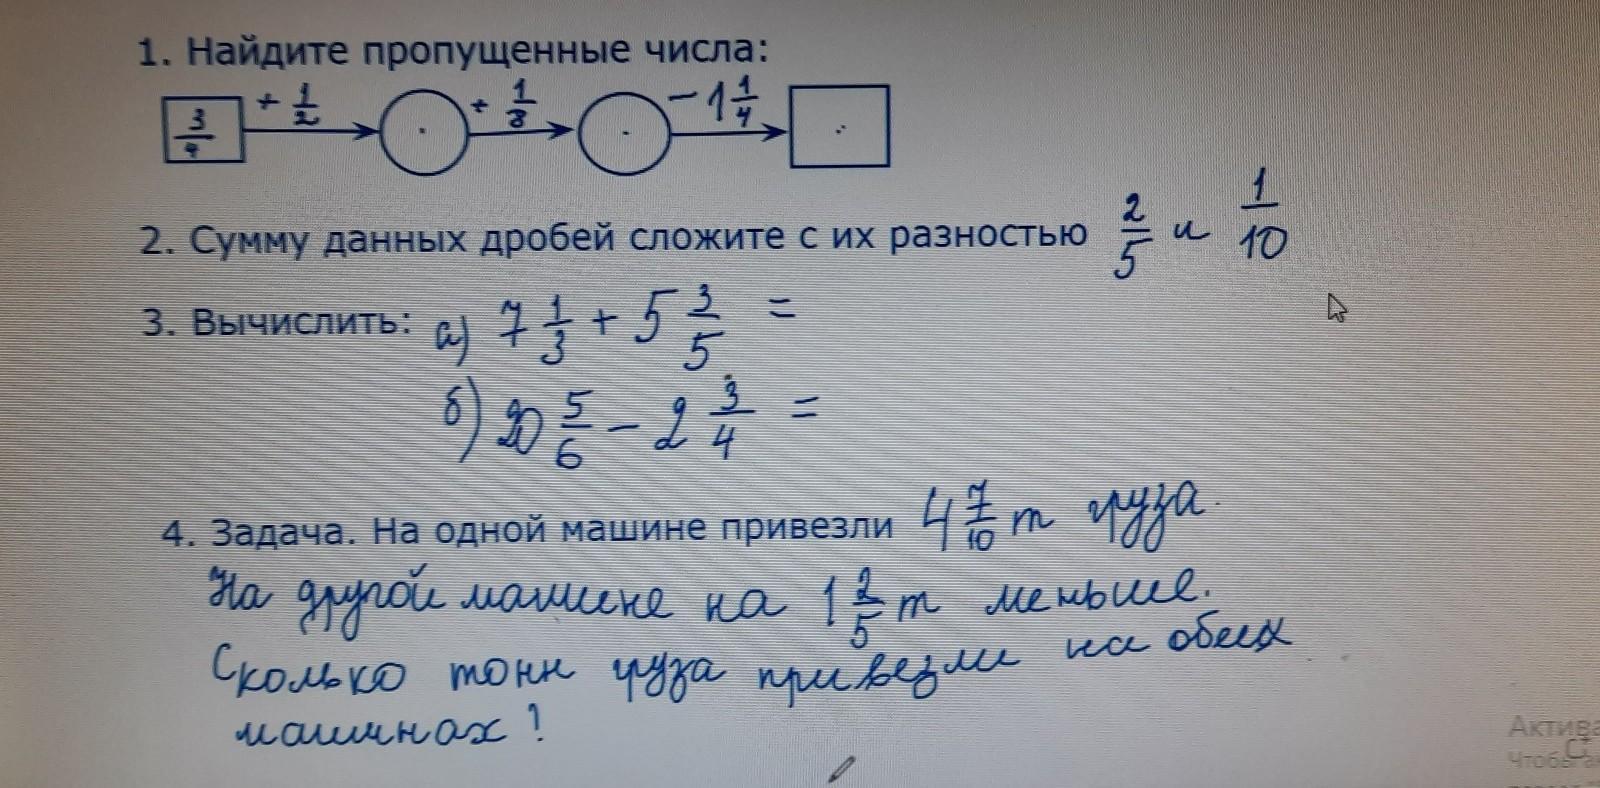 1. Найдите пропущенные числа:
3/4 + 1/2 + 1/8 - 1 1/4
2. Сумму данных дробей сложите с их разностью 2/5 и 1/10
3. Вычислить: а) 7 1/3 + 5 3/5 =
б) 20 5/6 - 2 3/4 =
4. Задача. На одной машине привезли 4 7/10 т груза.
На другой машине на 1 2/5 т меньше.
Сколько тонн груза привезли на обеих
машинах?
Актива
Чтобы а